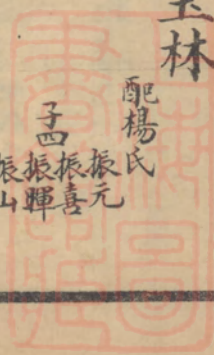 玉林
配楊氏
子四
振元
振喜
振暉
振山